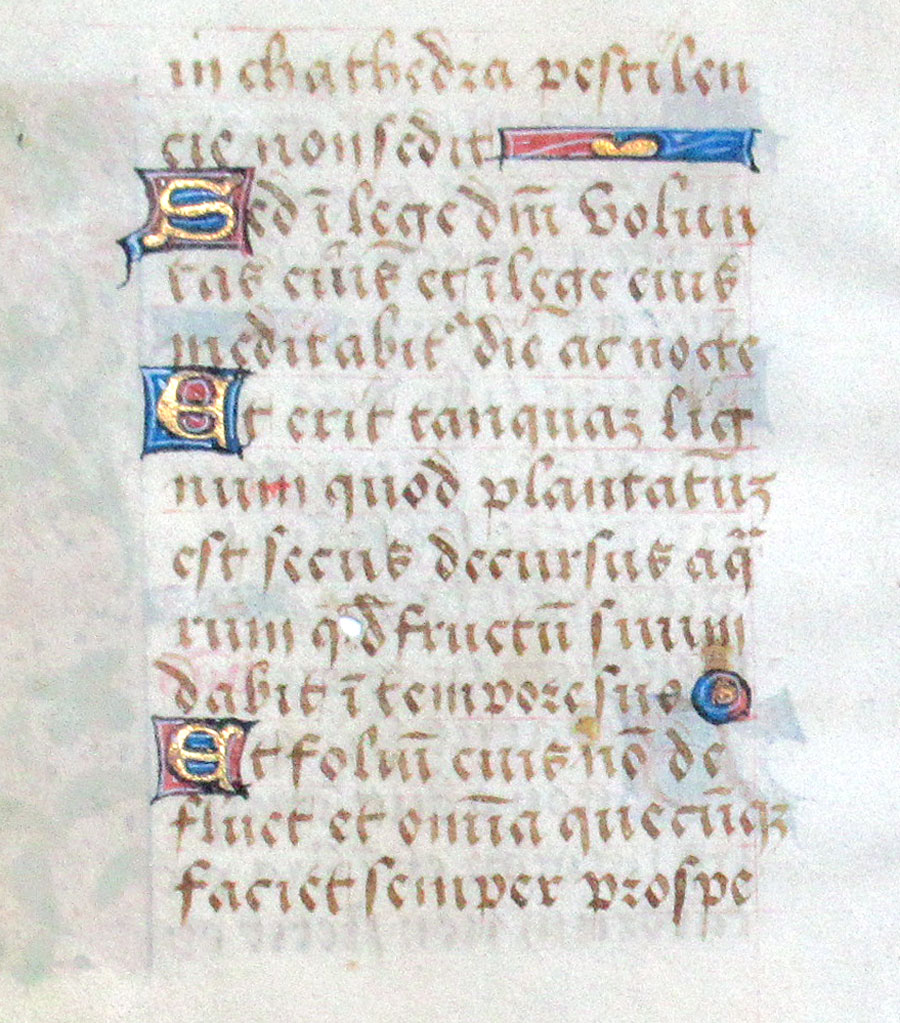 in chathedra pestilen
cie non sedit
Sed ī lege dm̄ volun
tas eiuis et ī lege eius
meditabit᷑ die ac nocte
Et erit tanquaz lig
num quod plantatuz
est secus decursus aq̄
rum qd̄ fructū suum
dabit ī tempore suo
Et foliuī eius nō de
fluet et om̄ia quecūqz
faciet semper prospe